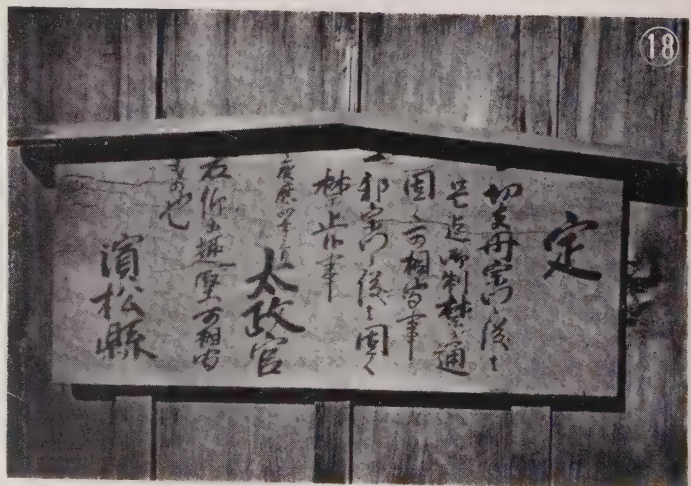 定
切支丹宗門之儀ハ
是迄御制禁之通
固ク可相守事
一邪宗門之儀ハ固ク
禁止候事
慶應四年三月
太政官
右被仰出趣堅可相守
もの也
濱松縣
⑱